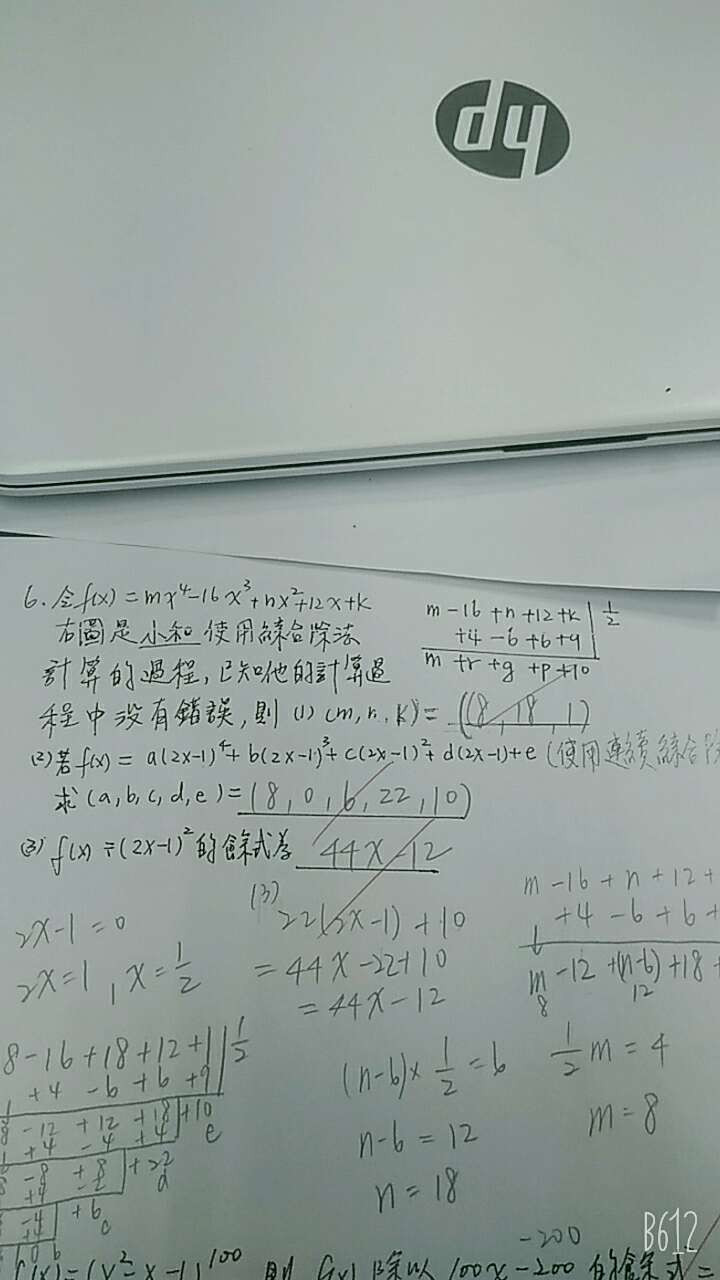 hp
6. 令f(x) = mx⁴-16x³+nx²+12x+k
右圖是小和使用綜合除法
計算的過程, 已知他的計算過
程中没有錯誤, 則 (1) (m, n, k) = (8, 18, 1)
m -16 +n +12 +k | 1/2
+4 -6 +6 +9
m +r +g +p +10
(2) 若f(x) = a(2x-1)⁴+b(2x-1)³+c(2x-1)²+d(2x-1)+e (使用連續綜合除
求 (a, b, c, d, e) = (8, 0, 6, 22, 10)
(3) f(x) ÷ (2x-1)² 的餘式為 44x-12
2x-1=0
2x=1, x=1/2
(3)
22(2x-1)+10
=44x-22+10
=44x-12
m -16 +n +12 +
+4 -6 +6 +
m -12 +(n-6) +18 +
8 12
8 -16 +18 +12 +1 | 1/2
+4 -6 +6 +9
8 -12 +12 +18 +10
e
+4 -4 +4
8 -8 +8 +22
d
+4 -2
-4 +6
c
(n-6)×1/2=6
n-6=12
n=18
1/2m=4
m=8
f(x)=(x²-x-1)¹⁰⁰ 則 f(x) 除以 100x-200 的餘式=
-200
B612